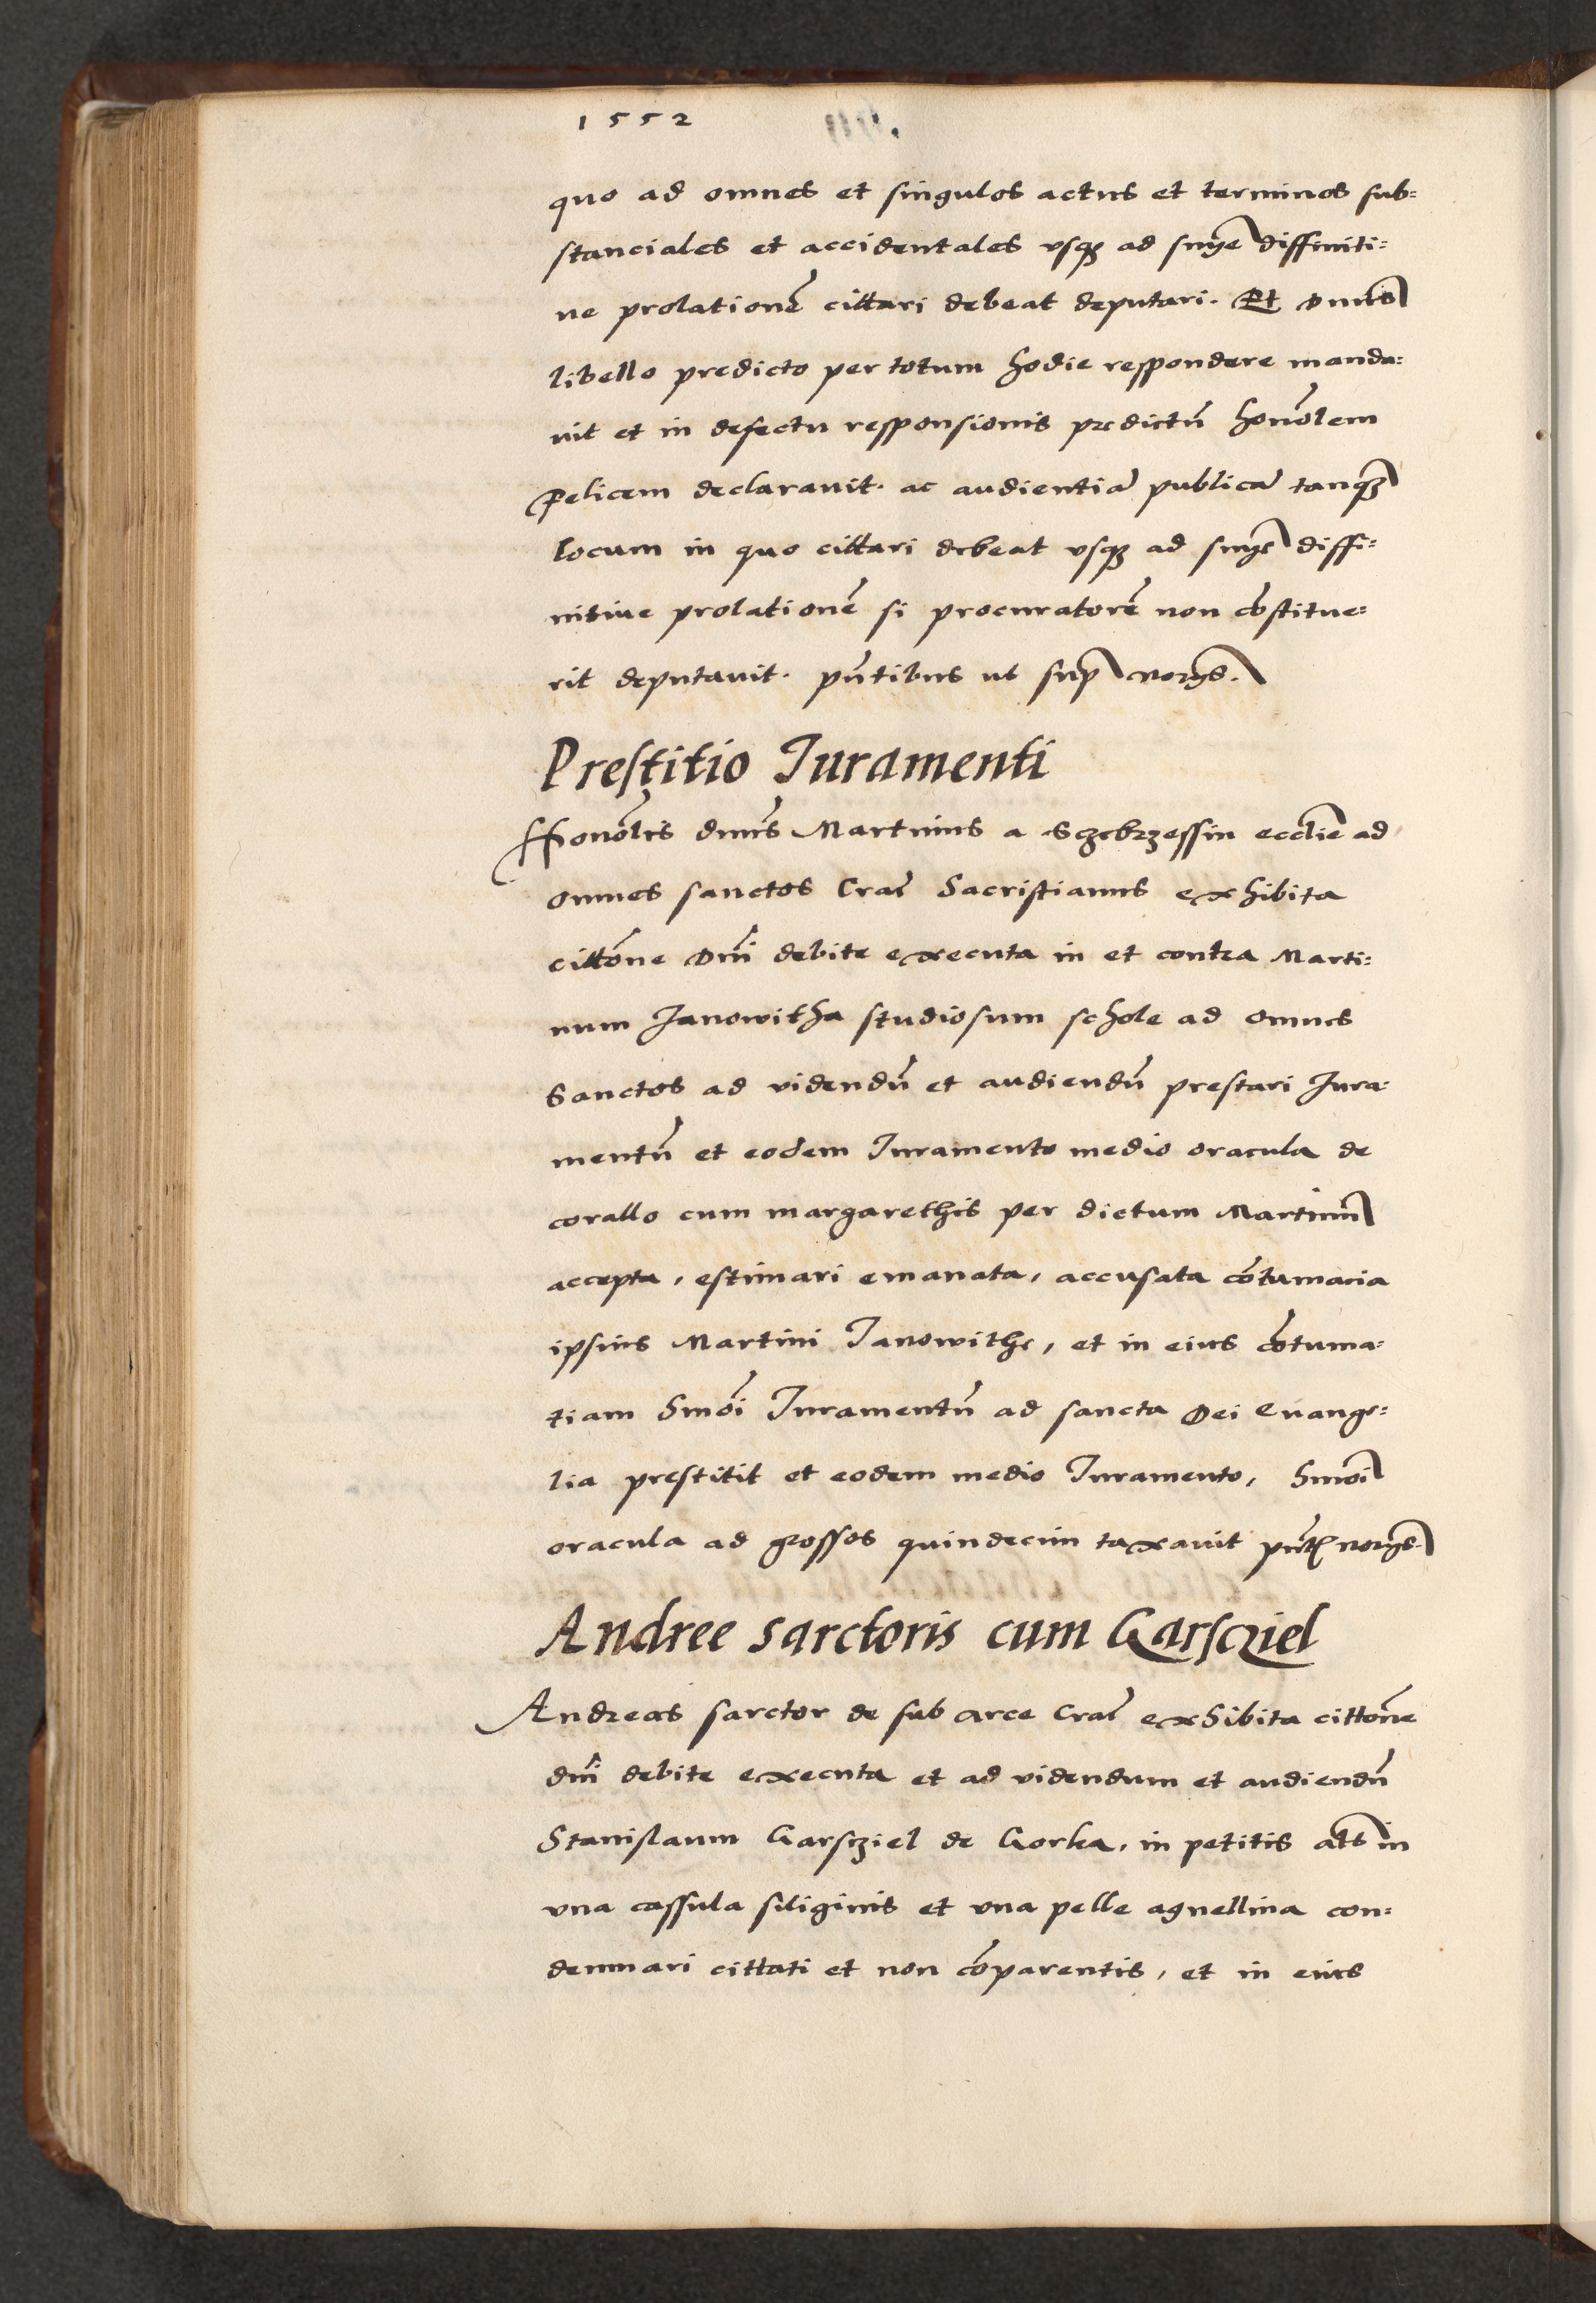 1552
quo ad omnes et singulos actus et terminos sub=
stanciales et accidentales vsq3 ad snye diffiniti=
ue prolationē cittari debeat deputari. Et Dnus
libello predicto per totum hodie respondere manda=
uit et in defectu responsionis predictū honōlem
Felicem declarauit. ac audientiā publicā tanq3
locum in quo cittari debeat vsq3 ad snye diffi=
nitiue prolationē si procuratorē non cōstitue=
rit deputauit. pn̄tibus ut sup̄ norys.
Prestitio Iuramenti
Honōlis dnus Martinus a Sczebrzessin ecclie ad
omnes sanctos Crac̄ Sacristianus exhibita
cittōne Dni debite executa in et contra Marti=
num Janowitha studiosum schole ad omnes
Sanctos ad videndū et audiendū prestari Iura=
mentū et eodem Iuramento medio oracula de
corallo cum margarethis per dictum Martinū
accepta, estimari emanata, accusata cōtumacia
ipsius Martini Janowithe, et in eius cōtuma=
tiam Smōi Iuramentū ad sancta Dei Euange=
lia prestitit et eodem medio Iuramento, Smōi
oracula ad grossos quindecim taxauit pn̄t norys
Andree sarctoris cum Garscziel
Andreas sarctor de sub arce Crac̄ exhibita cittōne
dni debite executa et ad videndum et audiendū
Stanislaum Garscziel de Gorka, in petitis als in
vna cassula siliginis et vna pelle agnellina con=
demnari cittati et non cōparentis, et in eius